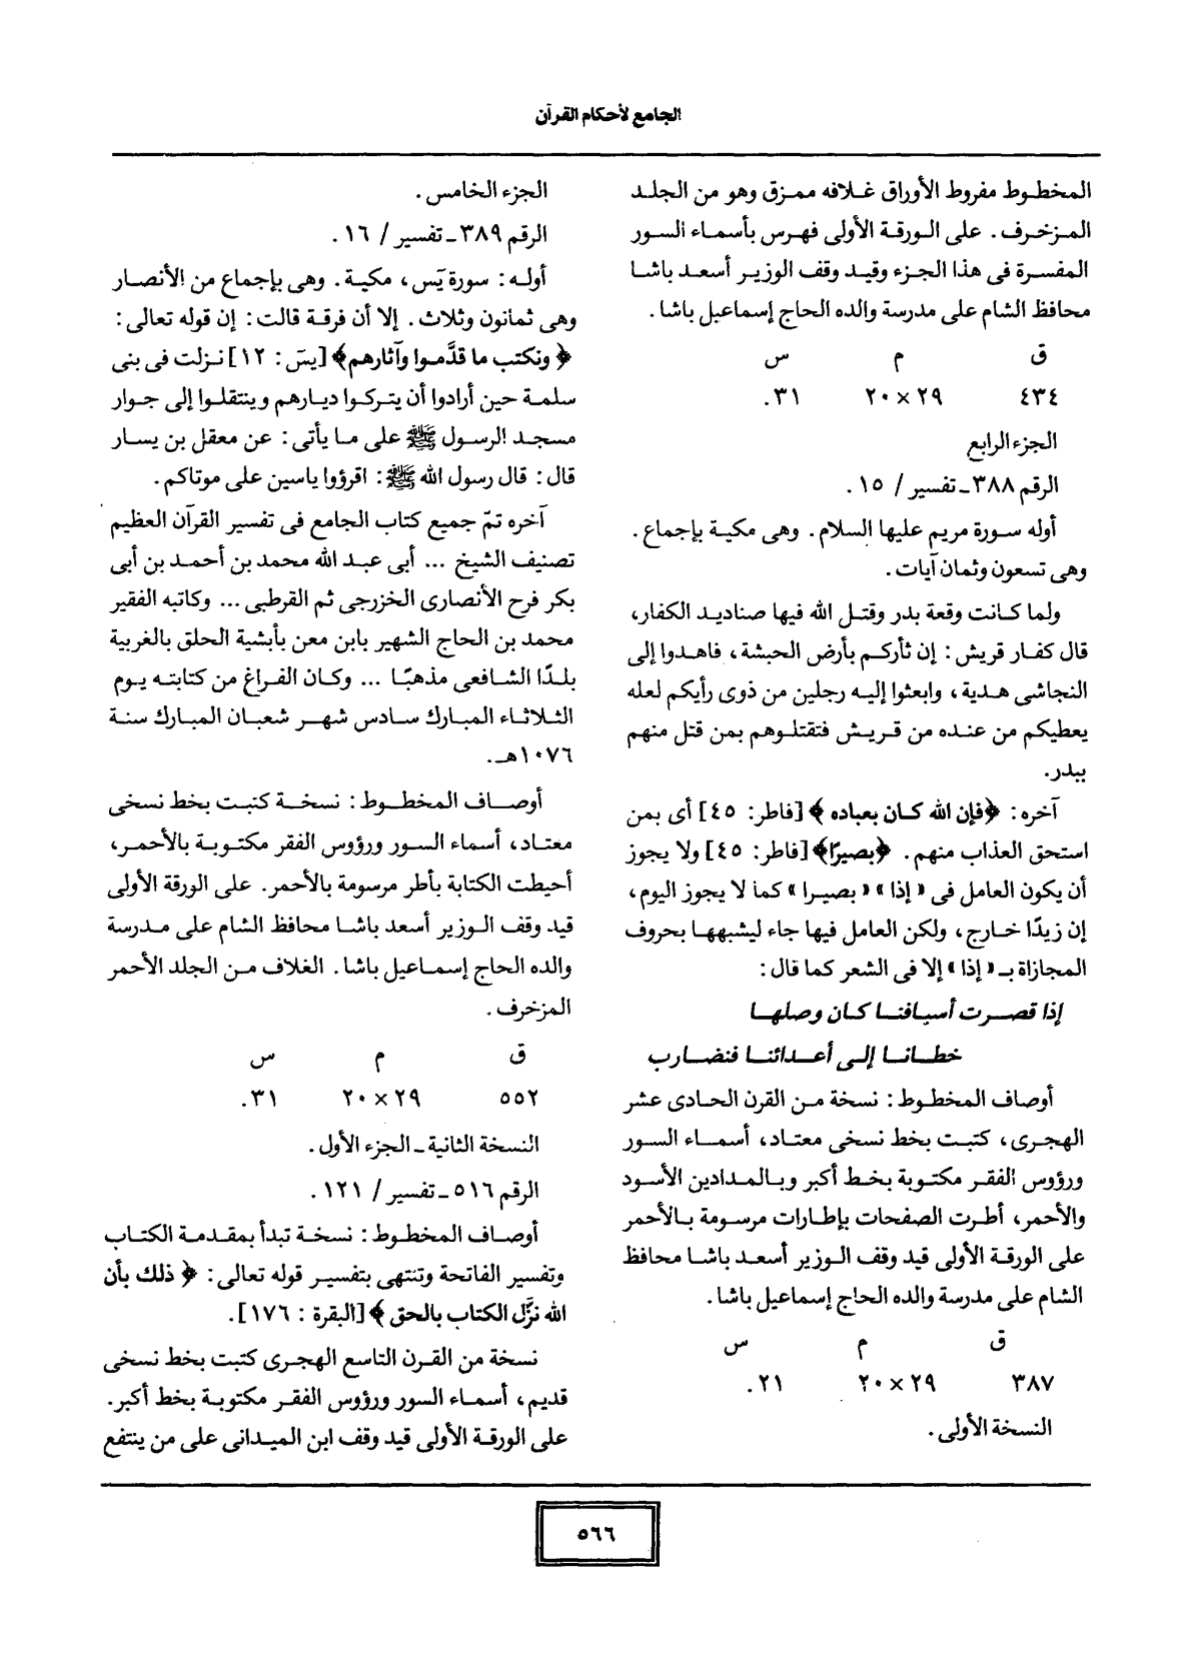 الجامع لأحكام القرآن
المخطوط مفروط الأوراق غلافه ممزق وهو من الجلد
المزخرف. على الورقة الأولى فهرس بأسماء السور
المفسرة فى هذا الجزء وقيد وقف الوزير أسعد باشا
محافظ الشام على مدرسة والده الحاج إسماعيل باشا.
ق م س
٤٣٤ ٢٩ × ٢٠ ٣١.
الجزء الرابع
الرقم ٣٨٨ ـ تفسير / ١٥.
أوله سورة مريم عليها السلام. وهى مكية بإجماع.
وهى تسعون وثمان آيات.
ولما كانت وقعة بدر وقتل الله فيها صناديد الكفار،
قال كفار قريش: إن ثأركم بأرض الحبشة، فاهدوا إلى
النجاشى هدية، وابعثوا إليه رجلين من ذوى رأيكم لعله
يعطيكم من عنده من قريش فتقتلوهم بمن قتل منهم
ببدر.
آخره: ﴿فإن الله كان بعباده﴾ [فاطر: ٤٥] أى بمن
استحق العذاب منهم. ﴿بصيرًا﴾ [فاطر: ٤٥] ولا يجوز
أن يكون العامل فى «إذا» «بصيرا» كما لا يجوز اليوم،
إن زيدًا خارج، ولكن العامل فيها جاء ليشبهها بحروف
المجازاة بـ «إذا» إلا فى الشعر كما قال:
إذا قصرت أسيافنا كان وصلها
خطانا إلى أعدائنا فنضارب
أوصاف المخطوط: نسخة من القرن الحادى عشر
الهجرى، كتبت بخط نسخى معتاد، أسماء السور
ورؤوس الفقر مكتوبة بخط أكبر وبالمدادين الأسود
والأحمر، أطرت الصفحات بإطارات مرسومة بالأحمر
على الورقة الأولى قيد وقف الوزير أسعد باشا محافظ
الشام على مدرسة والده الحاج إسماعيل باشا.
ق م س
٣٨٧ ٢٩ × ٢٠ ٢١.
النسخة الأولى.
الجزء الخامس.
الرقم ٣٨٩ ـ تفسير / ١٦.
أوله: سورة يَس، مكية. وهى بإجماع من الأنصار
وهى ثمانون وثلاث. إلا أن فرقة قالت: إن قوله تعالى:
﴿ونكتب ما قدَّموا وآثارهم﴾ [يسَ: ١٢] نزلت فى بنى
سلمة حين أرادوا أن يتركوا ديارهم وينتقلوا إلى جوار
مسجد الرسول ﷺ على ما يأتى: عن معقل بن يسار
قال: قال رسول الله ﷺ: اقرؤوا ياسين على موتاكم.
آخره تمّ جميع كتاب الجامع فى تفسير القرآن العظيم
تصنيف الشيخ ... أبى عبد الله محمد بن أحمد بن أبى
بكر فرح الأنصارى الخزرجى ثم القرطبى ... وكاتبه الفقير
محمد بن الحاج الشهير بابن معن بأبشية الحلق بالغربية
بلدًا الشافعى مذهبًا ... وكان الفراغ من كتابته يوم
الثلاثاء المبارك سادس شهر شعبان المبارك سنة
١٠٧٦هـ.
أوصاف المخطوط: نسخة كتبت بخط نسخى
معتاد، أسماء السور ورؤوس الفقر مكتوبة بالأحمر،
أحيطت الكتابة بأطر مرسومة بالأحمر. على الورقة الأولى
قيد وقف الوزير أسعد باشا محافظ الشام على مدرسة
والده الحاج إسماعيل باشا. الغلاف من الجلد الأحمر
المزخرف.
ق م س
٥٥٢ ٢٩ × ٢٠ ٣١.
النسخة الثانية ـ الجزء الأول.
الرقم ٥١٦ ـ تفسير / ١٢١.
أوصاف المخطوط: نسخة تبدأ بمقدمة الكتاب
وتفسير الفاتحة وتنتهى بتفسير قوله تعالى: ﴿ذلك بأن
الله نزَّل الكتاب بالحق﴾ [البقرة: ١٧٦].
نسخة من القرن التاسع الهجرى كتبت بخط نسخى
قديم، أسماء السور ورؤوس الفقر مكتوبة بخط أكبر.
على الورقة الأولى قيد وقف ابن الميدانى على من ينتفع
٥٦٦